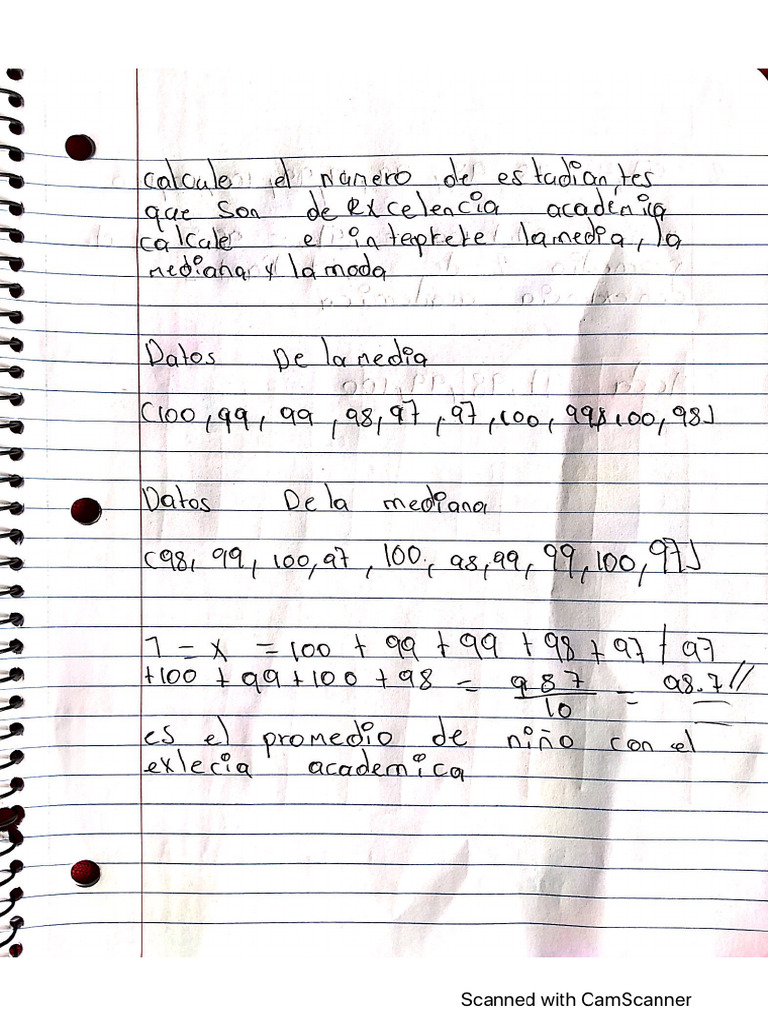 calcule el Numero de estudiantes
que son de excelencia academica
calcule e inteprete la media, la
mediana y la moda
Datos De la media
(100, 99, 99, 98, 97, 97, 100, 99, 100, 98)
Datos De la mediana
(98, 99, 100, 97, 100, 98, 99, 99, 100, 97)
1 = x = 100 + 99 + 99 + 98 + 97 + 97
+100 + 99 + 100 + 98 = 987/10 = 98.7//
es el promedio de niño con el
exlecia academica
Scanned with CamScanner